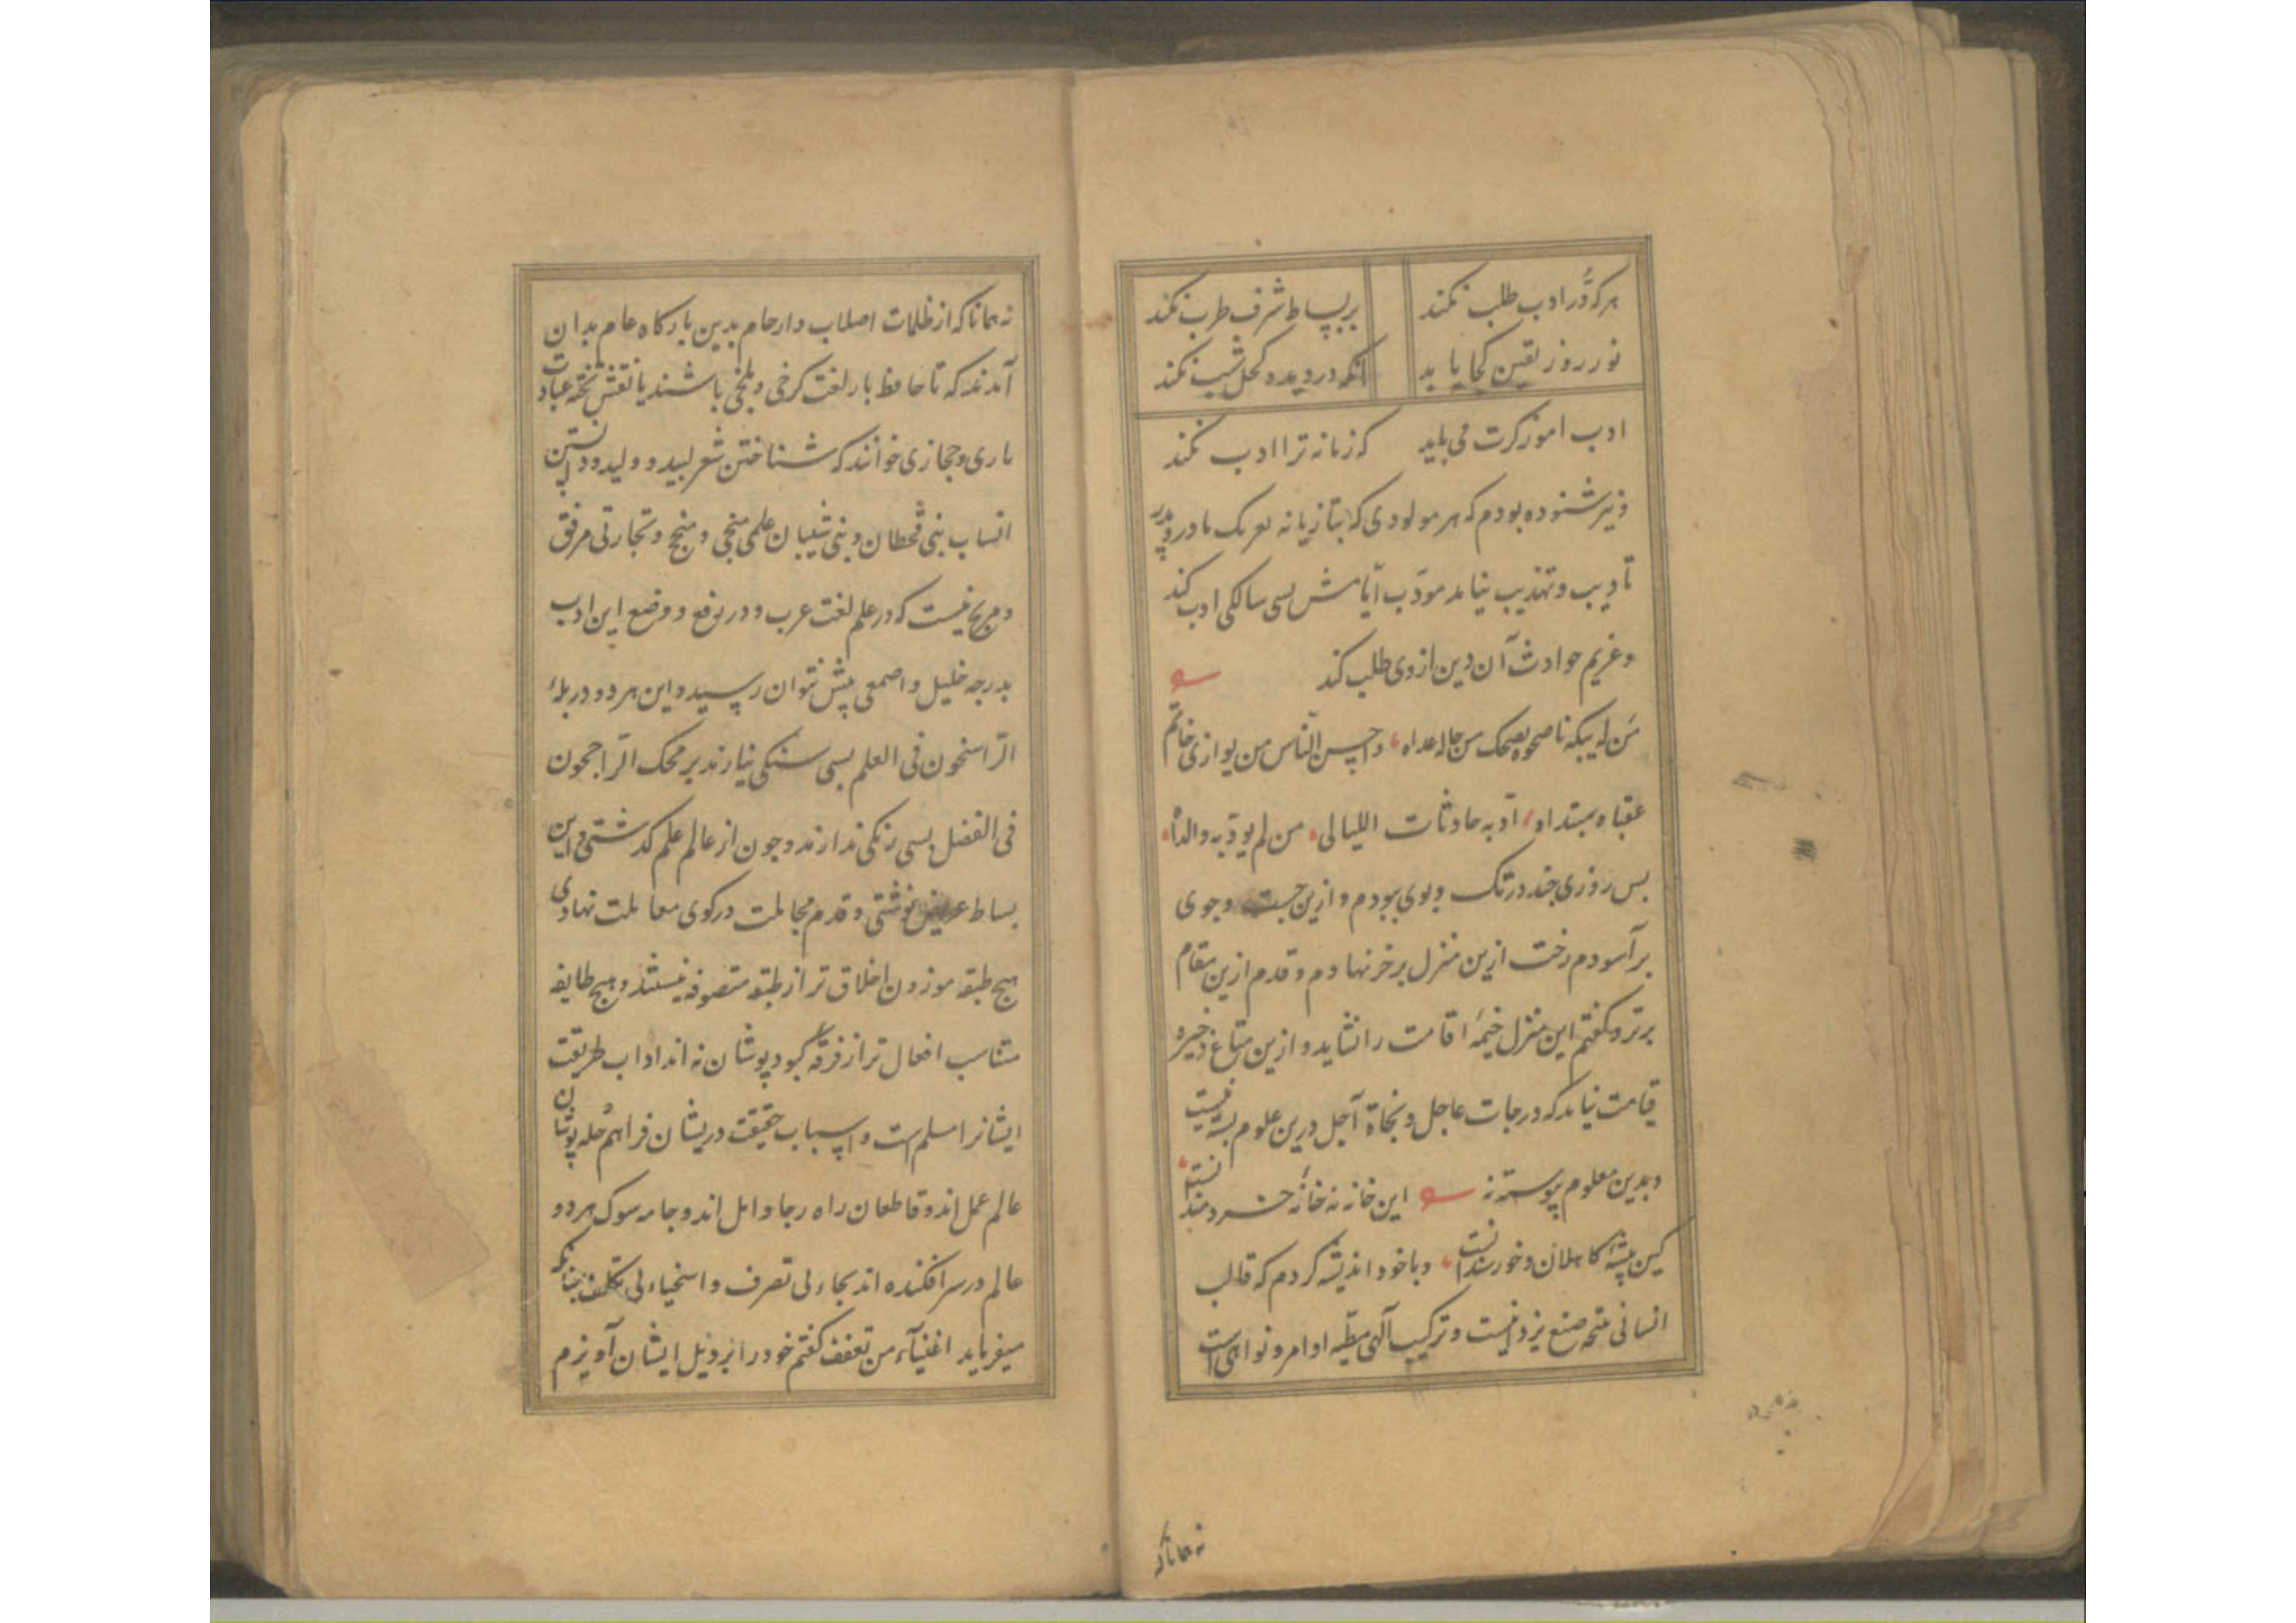 هرکه دُرّ ادب طلب نکند
بر بساط شرف طرب نکند
نور روز یقین کجا یابد
آنکه در دیده کحل شب نکند
ادب آموز کرت می باید
که زمانه ترا ادب نکند
و نیز شنوده بودم که هر مولودی که بتازیانه تعریک مادر و پدر
تادیب و تهذیب نیابد مودّب ایّامش بسی سالکی ادب کند
و غریم حوادث آن دین از وی طلب کند
من لم یبکه ناصحوه یضحک من حاله عداه و احسن الناس من یوازی خاتم
عقباه مبتداه ادّبه حادثات اللیالی من لم یودّبه والداه
بس روزی چند در تک و پوی ببودم و ازین جست و جوی
برآسودم رخت ازین منزل برخر نهادم و قدم ازین مقام
برتر و کفتم این منزل خیمۀ اقامت را نشاید و ازین متاع ذخیره
قیامت نیاید که درجات عاجل و نجاة آجل درین علوم بسته نیست
و بدین معلوم پیوسته نه این خانه نه خانۀ خردمندانست
کین پیشۀ کاهلان و خورسندانست و با خود اندیشه کردم که قالب
انسانی نتیجه صنع یزدانیست و ترکیب آلهی مطیّه اوامر و نواهی است
نه همانا که
نه همانا که از ظلمات اصلاب و ارحام بدین بارکاه عام بدان
آمدند که تا حافظ بار لغت کرخی و بلخی باشند یا نقش تخته عبادت
ماری و حجازی خوانند که شناختن شعر لبید و ولید و دانستن
انساب بنی قحطان و بنی شیبان علمی منجی و منجح و تجارتی مرفق
و مربح نیست که در علم لغت عرب و در رفع و وضع این ادب
بدرجه خلیل و اصمعی پیش نتوان رسید و این هر دو در پلۀ
الرّاسخون فی العلم بسی سنکی نیارند بر محک الرّاجحون
فی الفضل بسی رنکی ندارند و چون از عالم علم کذشتی و این
بساط عریض نوشتی و قدم مجاملت در کوی معاملت نهادی
هیچ طبقه موزون اخلاق تر از طبقه متصوفه نیستند و هیچ طایفه
متناسب افعال تر از فرقه کبود پوشان نه اند اداب طریقت
ایشانرا مسلم است و اسباب حقیقت دریشان فراهم حله پوشان
عالم عمل اند و قاطعان راه رجا و امل اند و جامه سوک هر دو
عالم در سر افکنده اند بجاء بی تصرف و اسخیاء بی تکلف چنانکه
میفرماید اغنیآء من تعفف کفتم خود را بر ذیل ایشان آویزم